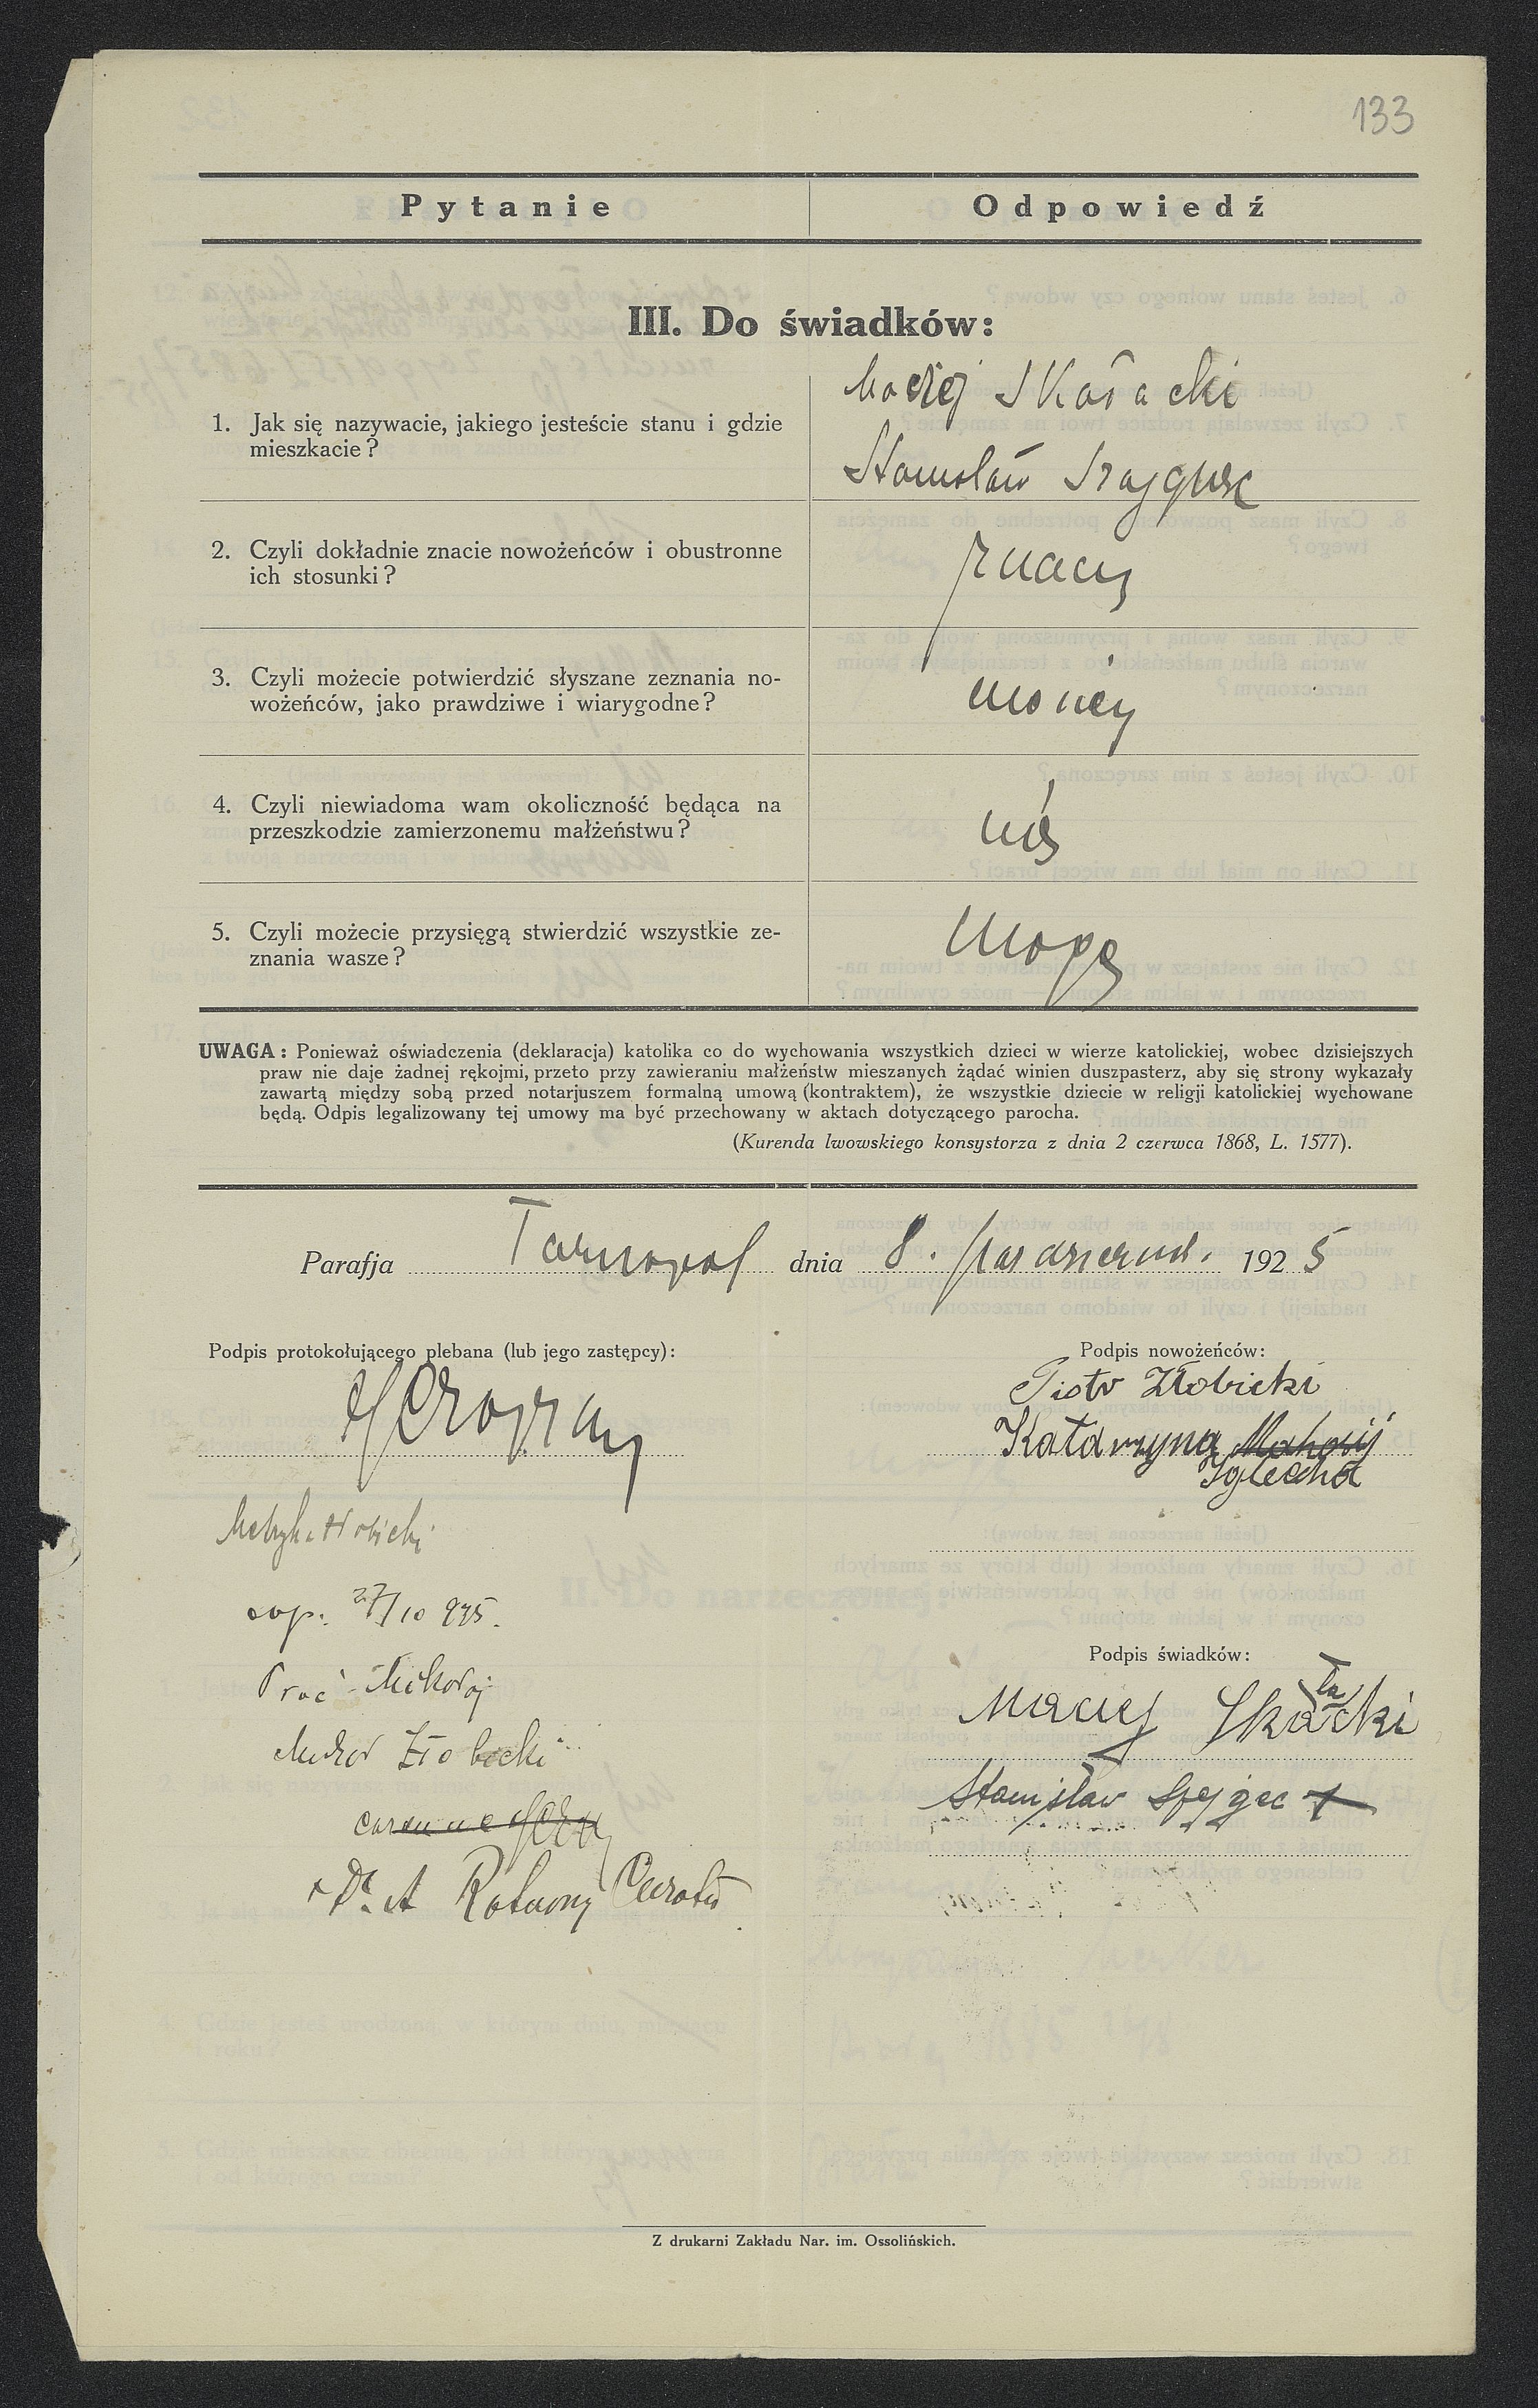 133
Pytanie Odpowiedź
III. Do świadków:
1. Jak się nazywacie, jakiego jesteście stanu i gdzie
mieszkacie?
Maciej Skałacki
Stanisław
2. Czyli dokładnie znacie nowożeńców i obustronne
ich stosunki?
znamy
3. Czyli możecie potwierdzić słyszane zeznania no-
wożeńców, jako prawdziwe i wiarygodne?
4. Czyli niewiadoma wam okoliczność będąca na
przeszkodzie zamierzonemu małżeństwu?
nie
5. Czyli możecie przysięgą stwierdzić wszystkie ze-
znania wasze?
UWAGA: Ponieważ oświadczenia (deklaracja) katolika co do wychowania wszystkich dzieci w wierze katolickiej, wobec dzisiejszych
praw nie daje żadnej rękojmi, przeto przy zawieraniu małżeństw mieszanych żądać winien duszpasterz, aby się strony wykazały
zawartą między sobą przed notarjuszem formalną umową (kontraktem), że wszystkie dziecie w religji katolickiej wychowane
będą. Odpis legalizowany tej umowy ma być przechowany w aktach dotyczącego parocha.
(Kurenda lwowskiego konsystorza z dnia 2 czerwca 1868, L. 1577).
Parafja Tarnopol dnia 8. październ. 1925
Podpis protokołującego plebana (lub jego zastępcy):
Podpis nowożeńców:
Piotr Złobicki
Katarzyna
Iglecha
27/10 925.
Mikołaj
Złobecki
Dr. A
Podpis świadków:
Maciej Skałacki
Stanisław +
Z drukarni Zakładu Nar. im. Ossolińskich.